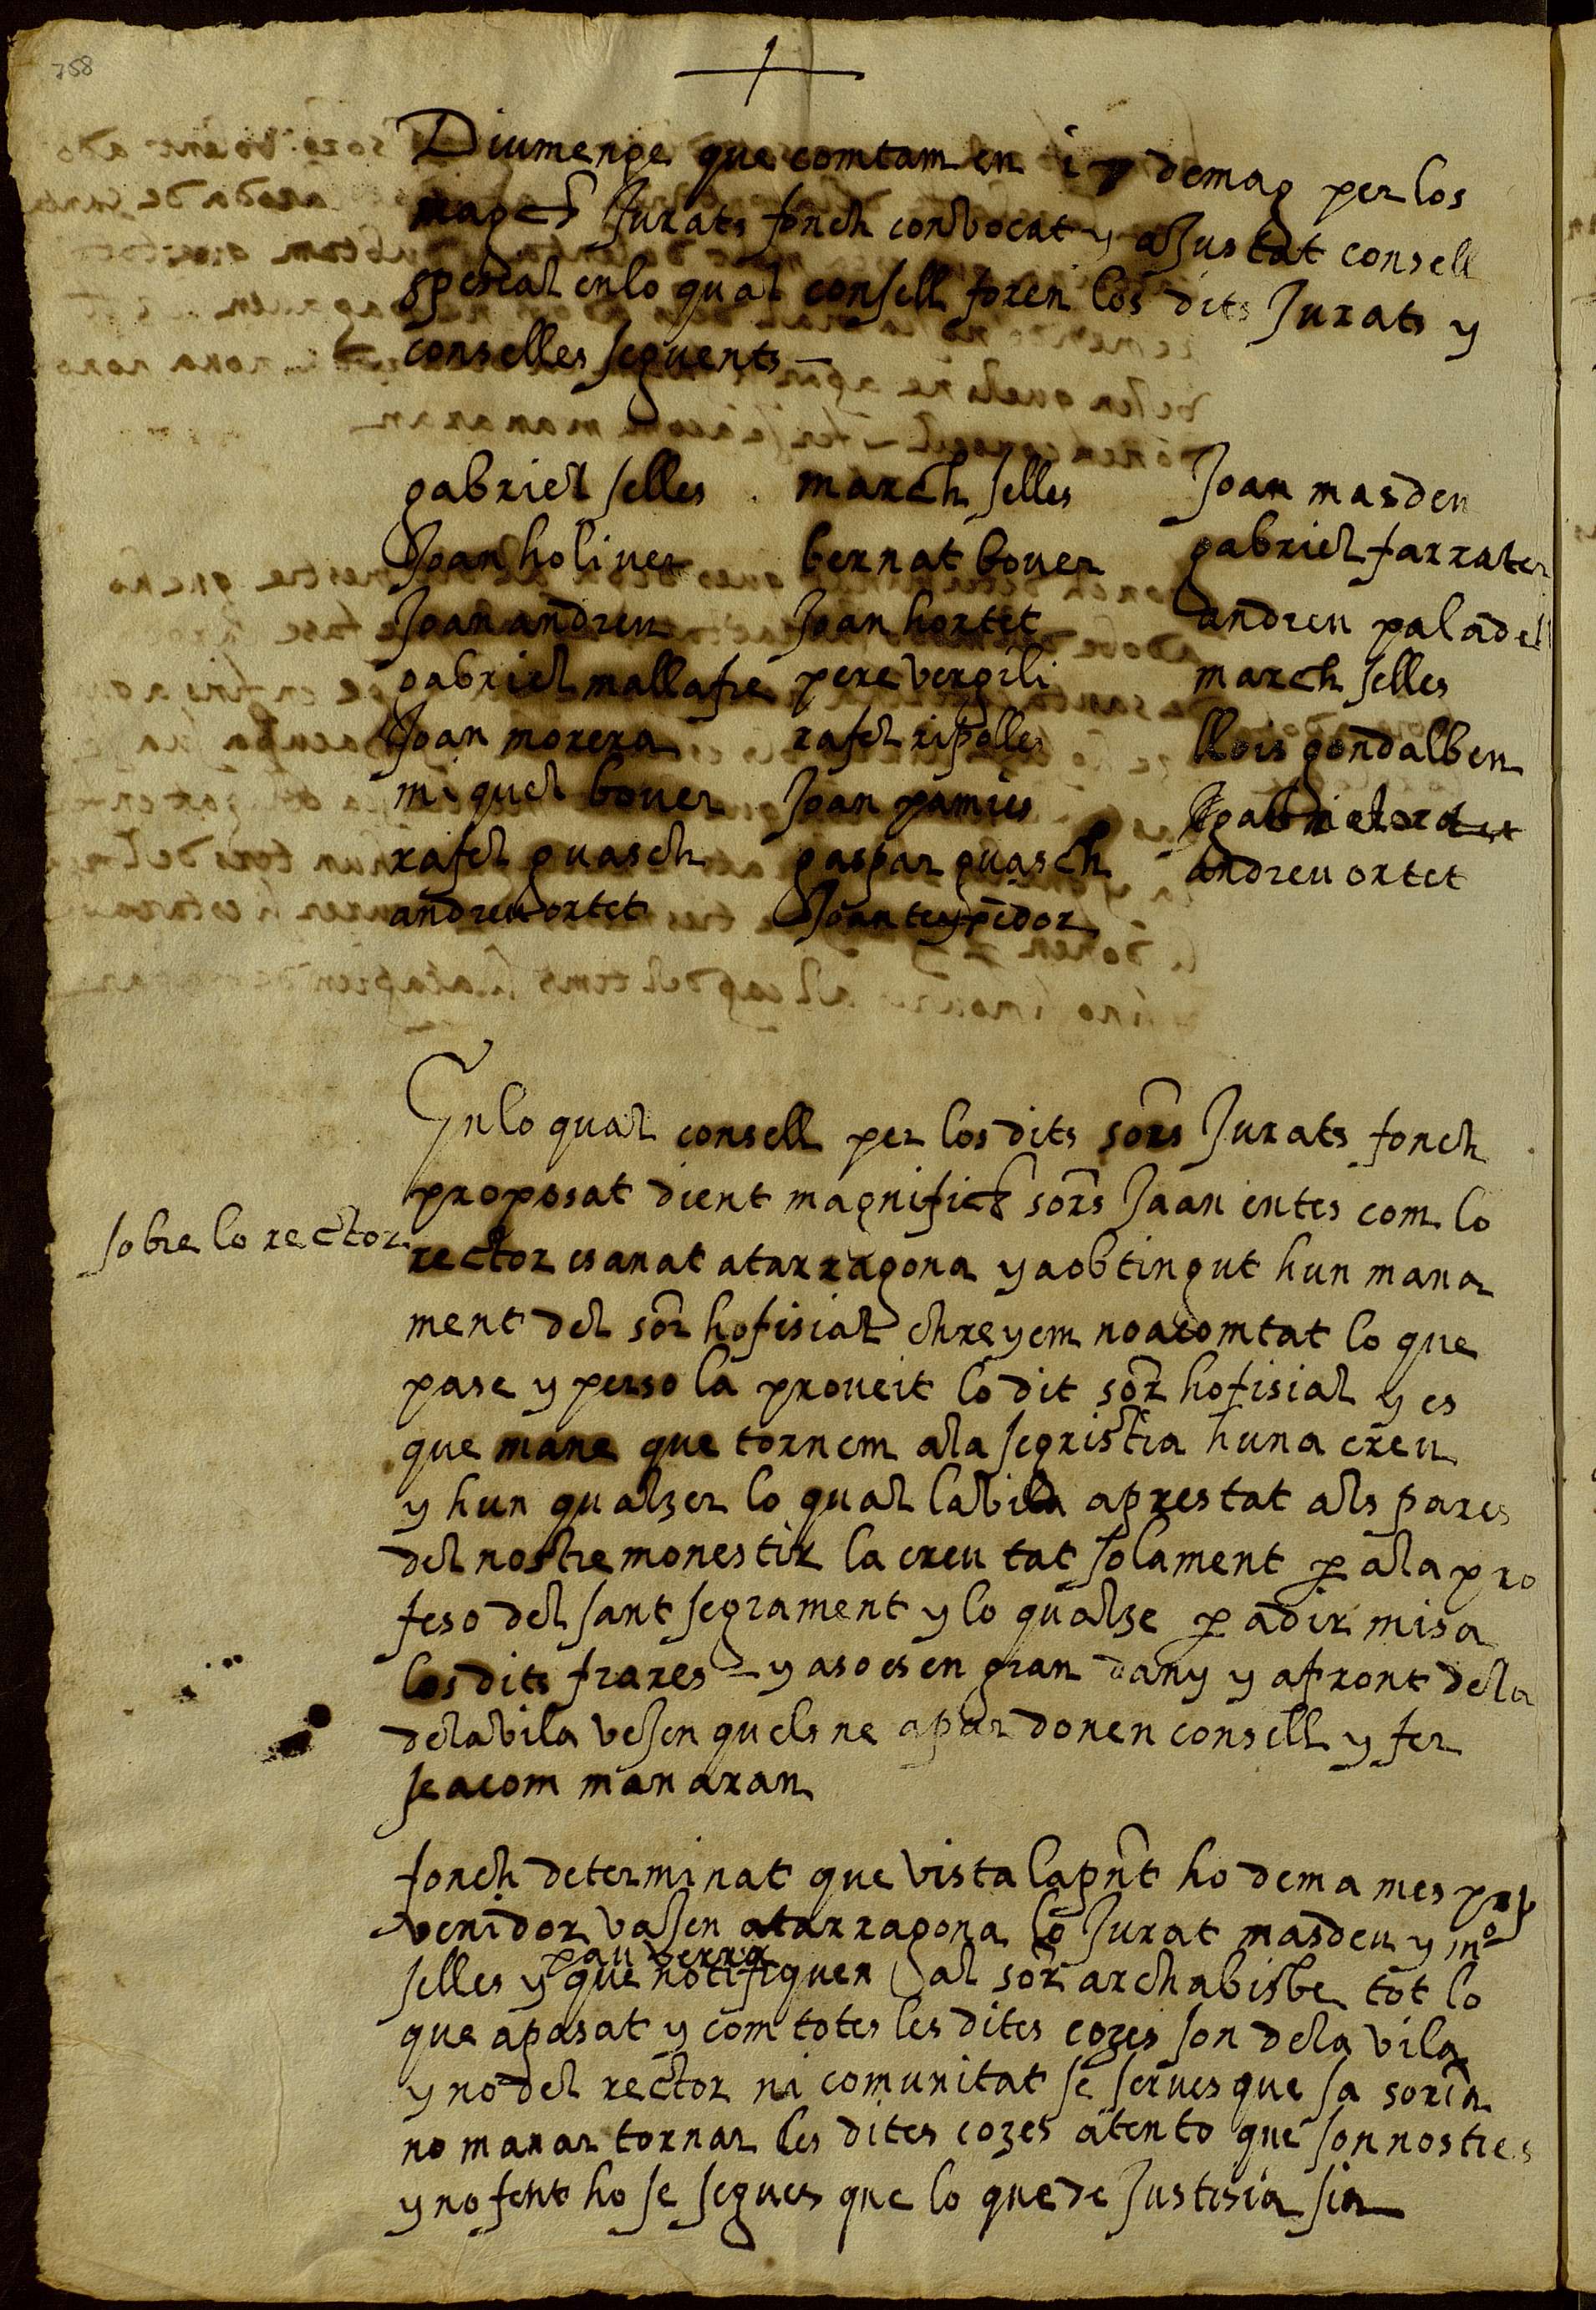 758
Diumenge que comtam en 17 de mag per los
magchs Jurats fonch convocat y ajustat consell
spesial en lo qual consell foren los dits Jurats y
conselles seguents
gabriel selles march selles Joan masdeu
Joan holiver bernat bover gabriel farrater
Joan andreu Joan hortet andreu paladell
gabriel mallafre pere vergili march selles
Joan morera rafel ripolles llois gondalbeu
miquel bover Joan pamies gabriel ortet
rafel guasch gaspar guasch andreu ortet
andreu ortet Joan teypidor
En lo qual consell per los dits sors Jurats fonch
proposat dient magnifichs sors Ja an entes com lo
sobre lo rector
rector es anat a tarragona y a obtingut hun mana
ment del sor hofisial chreyem no a comtat lo que
pase y per so la proveit lo dit sor hofisial y es
que mane que tornem a la segristia huna creu
y hun qualzer lo qual la vila a prestat als pares
del nostre monestir la creu tat solament p a la pro
feso del sant segrament y lo qualze p a dir misa
los dits frares y aso es en gran dany y afront de la
de la vila vejen quels ne apar donen consell y fer
se a com manaran
fonch determinat que vista la pnt ho dema mes
venidor vajen a tarragona lo Jurat masdeu y mo
pau
selles y que notifiquen al sor archabisbe tot lo
que a pasat y com totes les dites cozes son de la vila
y no del rector ni comunitat se serves que sa soria
no manar tornar les dites cozes atento que son nostres
y no fent ho se segues que lo que de Justisia sia